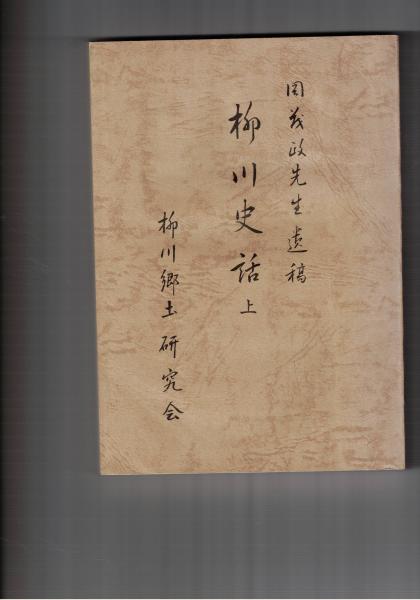 岡茂政先生遺稿
柳川史話 上
柳川郷土研究会